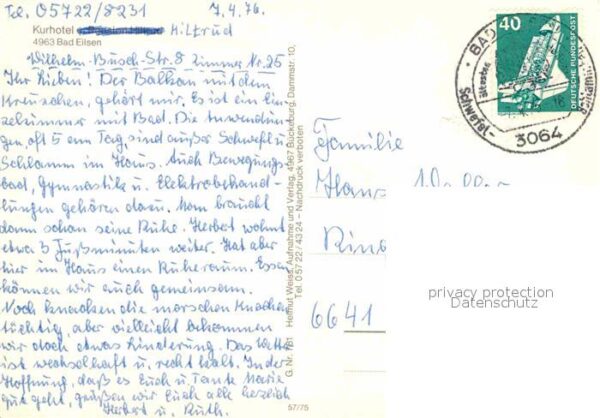 Tel. 05722/8231 7.4.76.
Kurhotel Hiltrud
4963 Bad Eilsen
Wilhelm-Busch-Str. 8 Zimmer Nr. 25
Ihr Lieben! Der Balkon mit dem
Kreuzchen, gehört mir. Es ist ein Ein-
zelzimmer mit Bad. Die Anwendun-
gen, oft 5 am Tag, sind außer Schwefel u.
Schlamm im Haus. Auch Bewegungs-
bad, Gymnastik u. Elektrobehand-
lungen gehören dazu. Man braucht
dann schon seine Ruhe. Herbert wohnt
etwa 3 Fußminuten weiter. Hat aber
hier im Haus einen Ruheraum. Essen
können wir auch gemeinsam.
Noch knacken die morschen Knochen
tüchtig, aber vielleicht bekommen
wir doch etwas Linderung. Das Wetter
ist wechselhaft u. recht kalt. In der
Hoffnung, daß es Euch u. Tante Marie
gut geht, grüßen wir Euch alle herzlich
Herbert u. Ruth.
G. Nr. 761 Helmut Weiss, Aufnahme und Verlag, 4967 Bückeburg, Dammstr. 10,
Tel. 05722/4324 - Nachdruck verboten
57/75
40
DEUTSCHE BUNDESPOST
BAD
ältestes
Schwefel-
3064
Familie
Hans
Rin
6641
privacy protection
Datenschutz